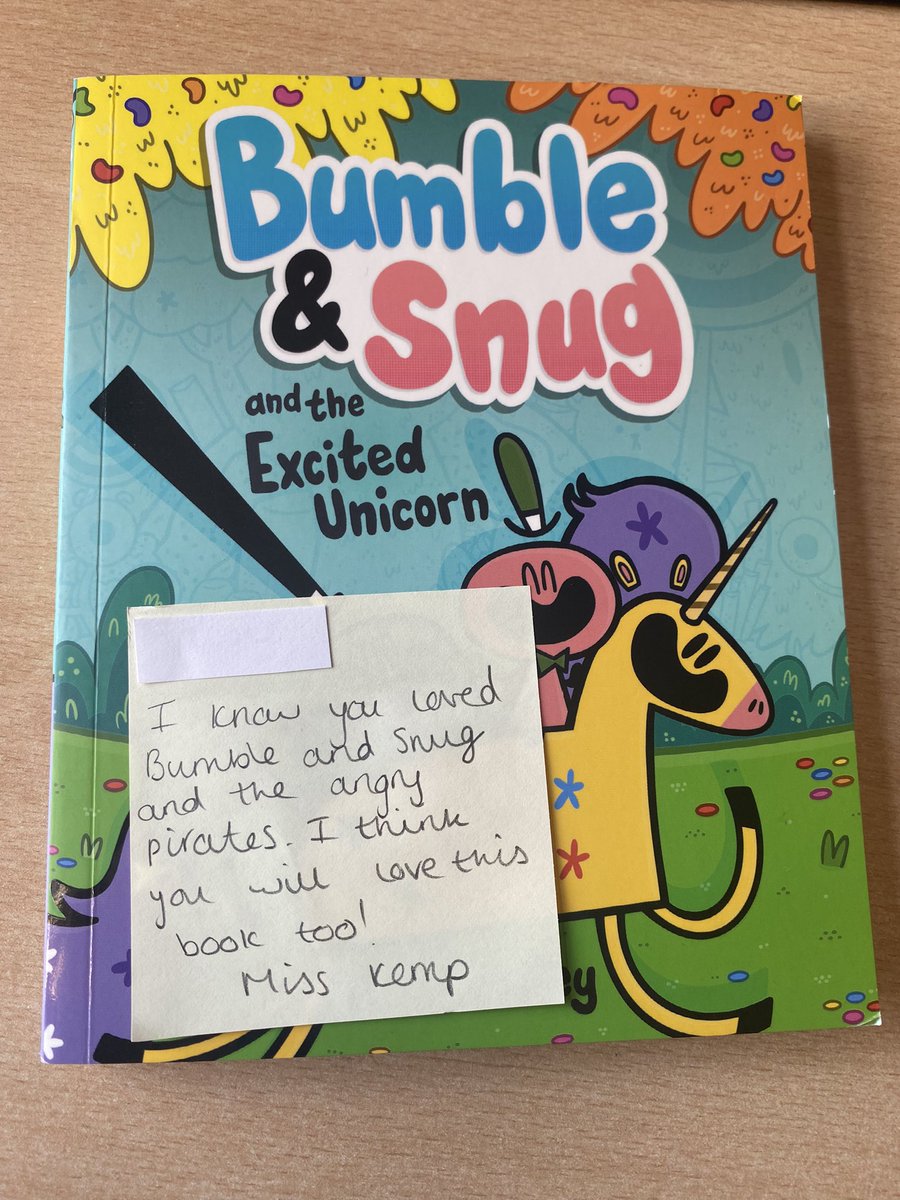 Bumble
& Snug
and the
Excited
Unicorn
I know you loved
Bumble and Snug
and the angry
pirates. I think
you will love this
book too!
Miss Kemp
ey